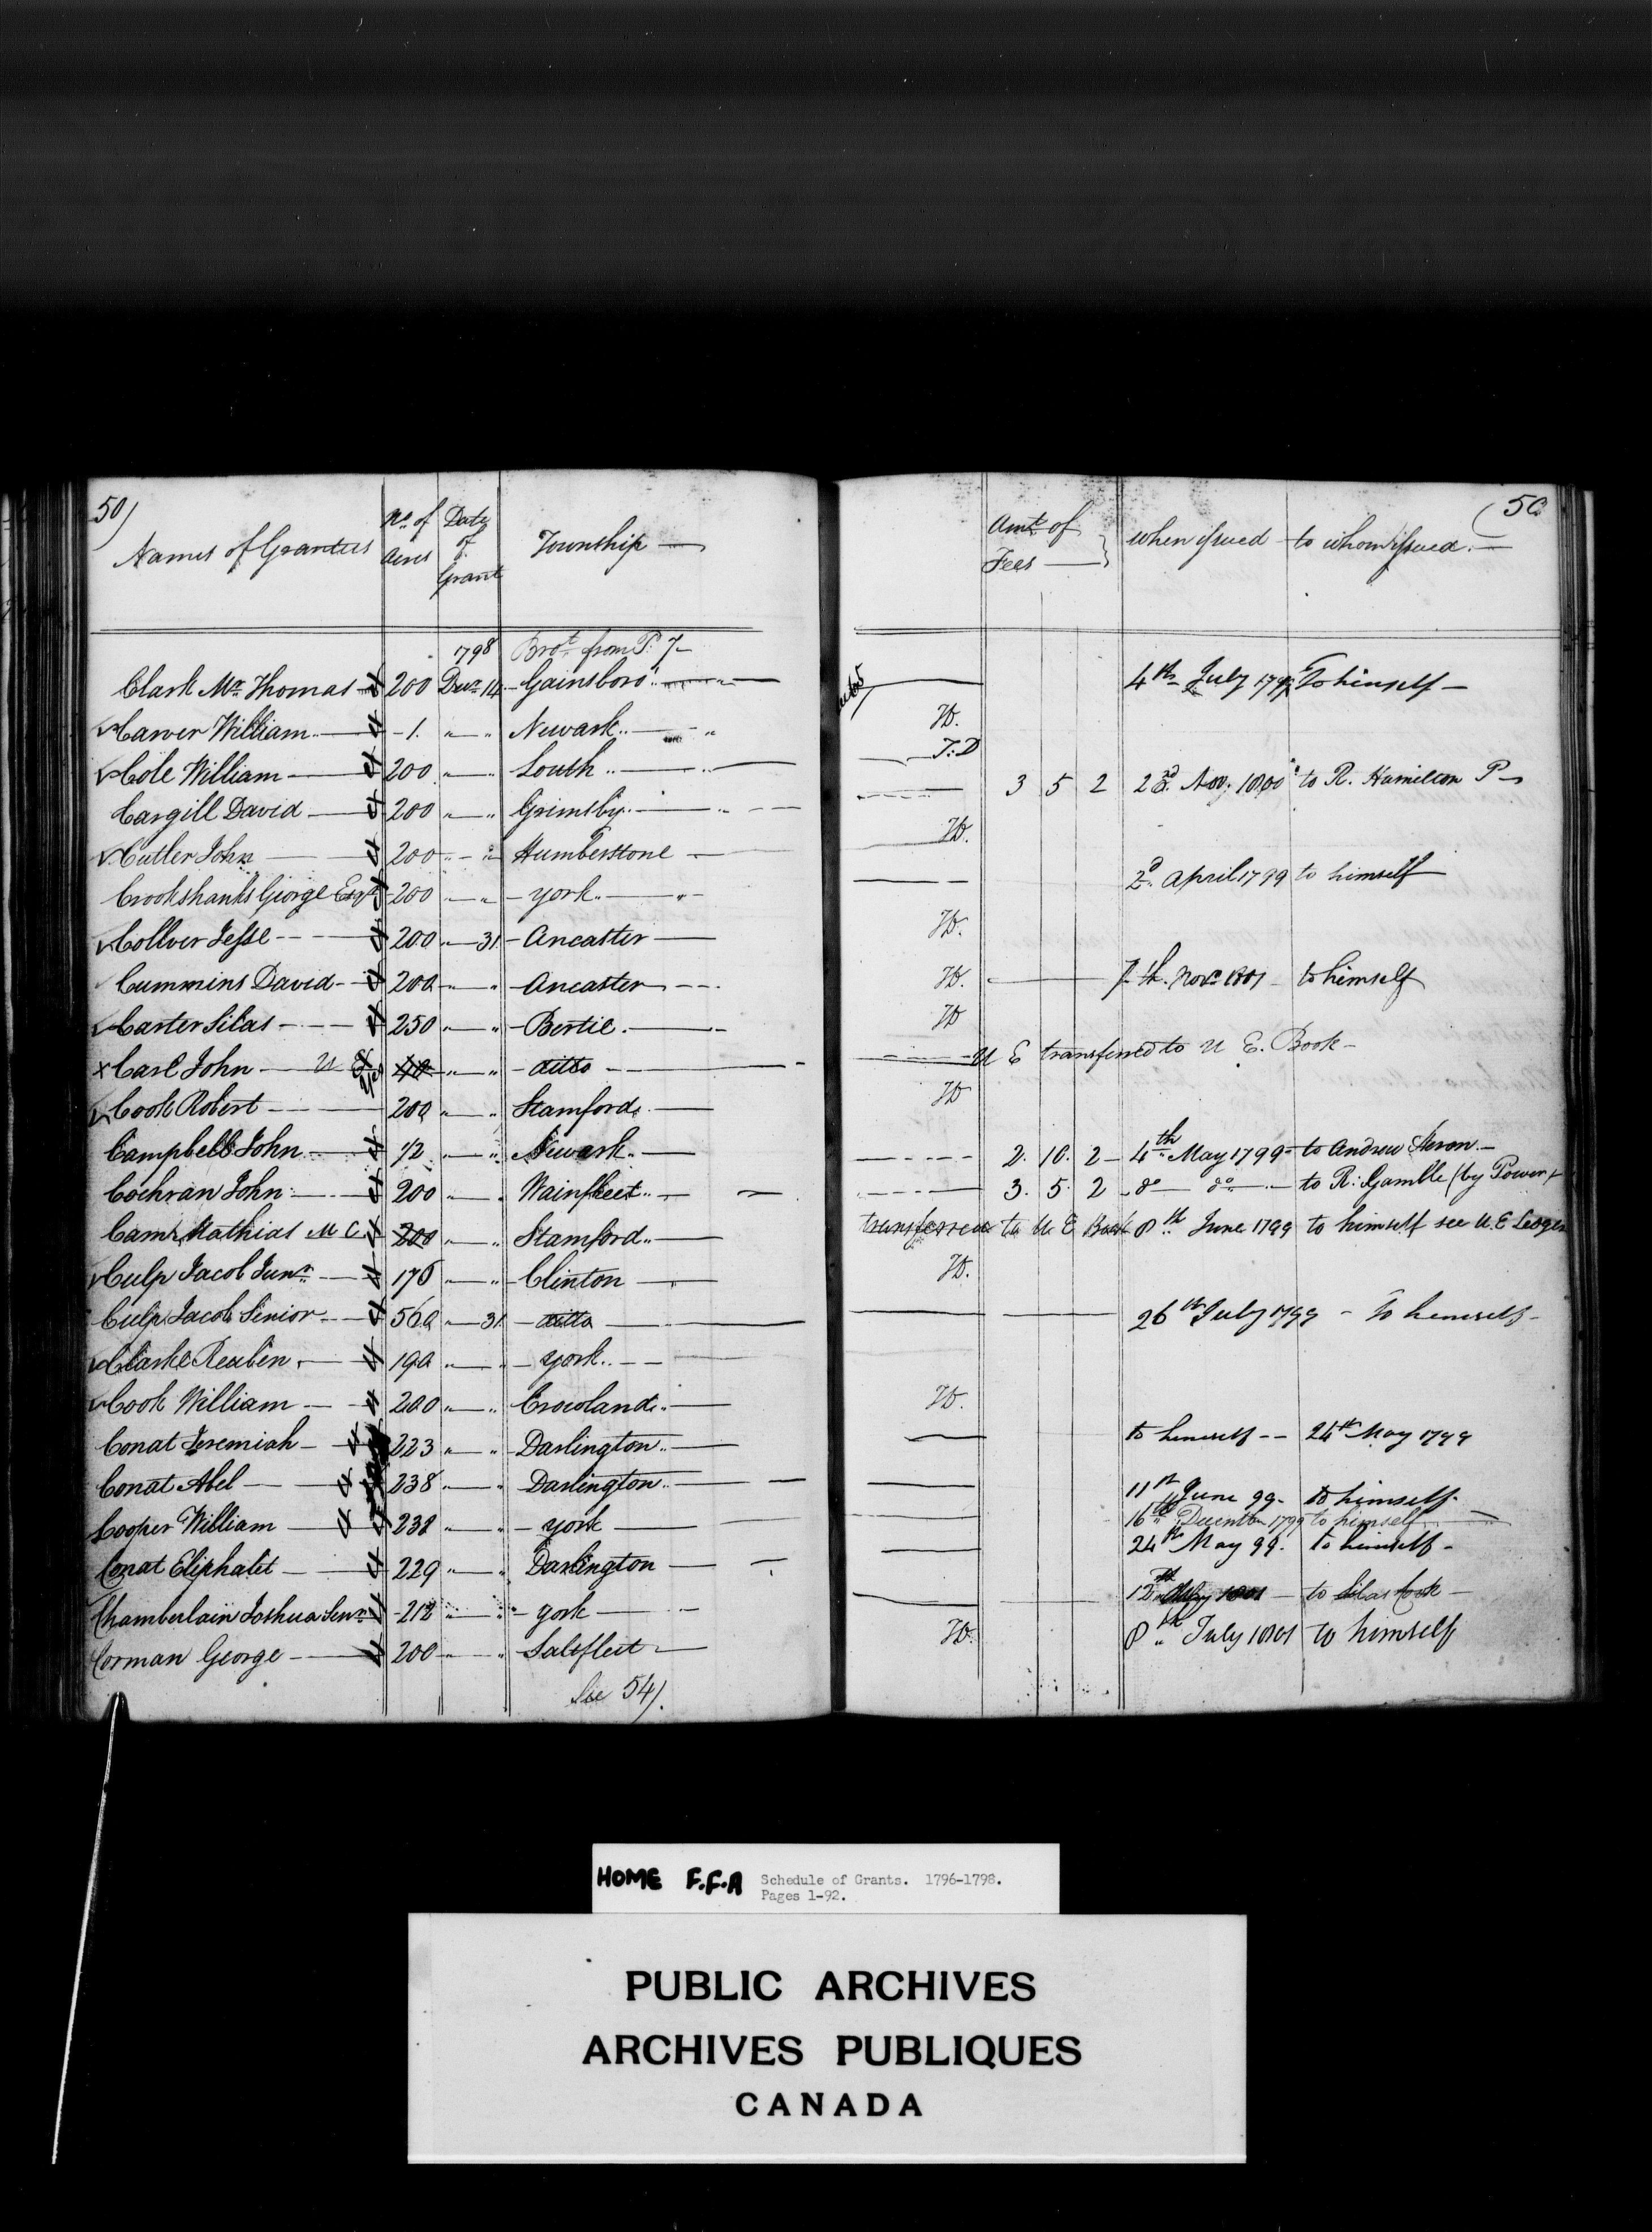 50)
(50
Names of Grantees
No. of Acres
Date of Grant
Township
Amt. of Fees
when issued
to whom issued
1798 Brot. from P. 7
Clark Mr. Thomas 200 Decr. 14 Gainsboro' 4th July 1797 To himself
Carver William 1. " " Newark H.
Cole William 200 " " Louth T:D
Cargill David 200 " " Grimsby 3 5 2 22d. Nov. 1800 to R. Hamilton P
Cutler John 200 " " Humberstone H.
Crookshanks George Esqr. 200 " " york 2d. April 1799 to himself
Collver Jesse 200 " 31 Ancaster H.
Cummins David 200 " " Ancaster H. 7th. Novr. 1801 to himself
Carter Silas 250 " " Bertie H
x Carl John U E " " ditto U E transferred to U E. Book
Cook Robert 200 " " Stamford H
Campbell John 1/2 " " Newark 2. 10. 2 4th May 1799 to Andrew Heron
Cochran John 200 " " Wainfleet 3. 5. 2 do do to R: Gamble (by Power)
Camr. Mathias M C. 200 " " Stamford transferred to U E Book 8th June 1799 to himself see U. E Ledger
Culp Jacob Junr. 170 " " Clinton H.
Culp Jacob Senior 560 " 31 ditto 26th July 1799 To himself
Clarke Reuben 190 " " york
Cook William 200 " " Crowland H.
Conat Jeremiah 223 " " Darlington to himself 24th May 1799
Conat Abel 238 " " Darlington 11th June 99 to himself
Cooper William 238 " " york 16th December 1799 to himself
Conat Eliphalet 229 " " Darlington 24th May 99. to himself
Chamberlain Joshua Senr 212 " " york 12th 1801 to Silas Cook
Corman George 200 " " Saltfleet H. 8th July 1801 to himself
See 54).
HOME F.F.A Schedule of Grants. 1796-1798.
Pages 1-92.
PUBLIC ARCHIVES
ARCHIVES PUBLIQUES
CANADA